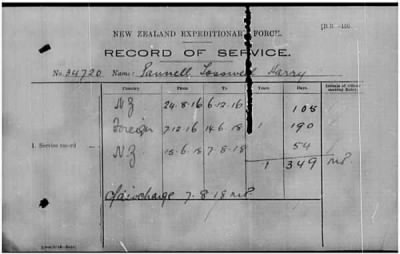 NEW ZEALAND EXPEDITIONARY FORCE.
RECORD OF SERVICE.
No. 34720 Name: Pannell, Harry
Country From To Years Days
NZ 24-8-16 6-12-16 105
Foreign 7-12-16 14-6-18 1 190
1. Service record
NZ 15-6-18 7-8-18 54
1 349
Discharge 7-8-18